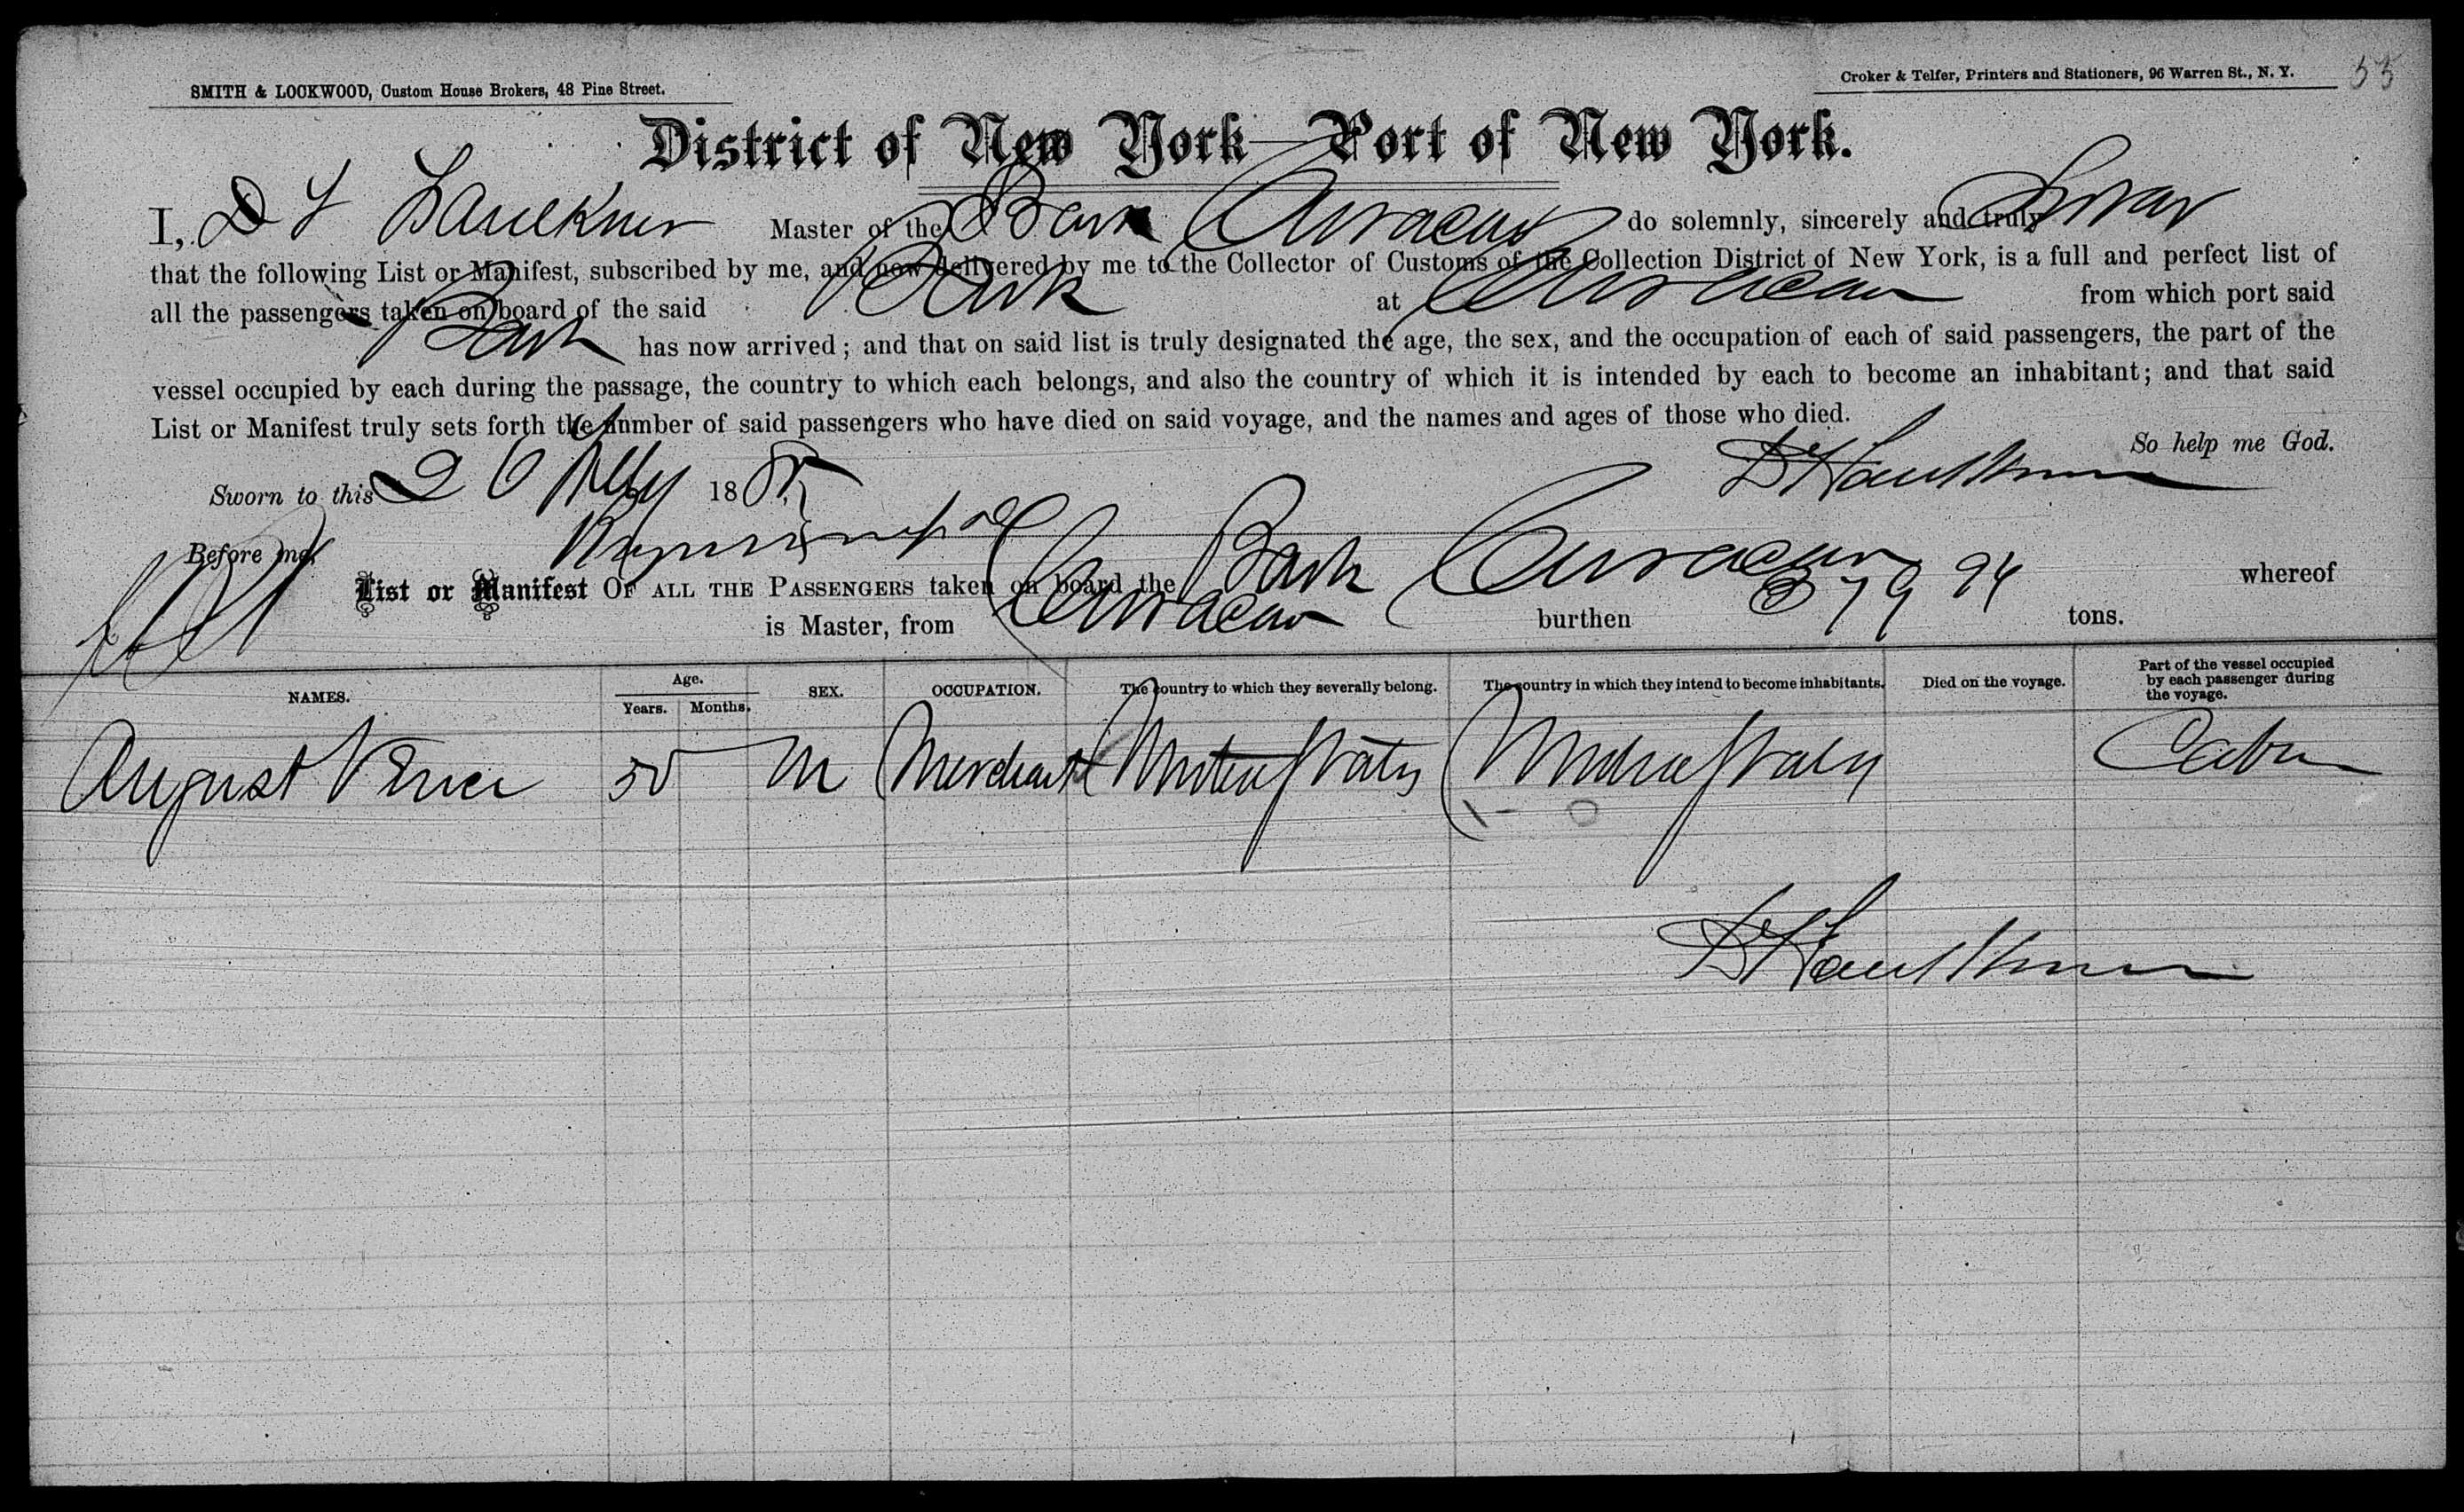 SMITH & LOCKWOOD, Custom House Brokers, 48 Pine Street.
Croker & Telfer, Printers and Stationers, 96 Warren St., N. Y.
District of New York—Port of New York.
I, D F Faulkner Master of the Bark Curacao do solemnly, sincerely and truly swear
that the following List or Manifest, subscribed by me, and now delivered by me to the Collector of Customs of the Collection District of New York, is a full and perfect list of
all the passengers taken on board of the said Bark at Curacao from which port said
Bark has now arrived; and that on said list is truly designated the age, the sex, and the occupation of each of said passengers, the part of the
vessel occupied by each during the passage, the country to which each belongs, and also the country of which it is intended by each to become an inhabitant; and that said
List or Manifest truly sets forth the number of said passengers who have died on said voyage, and the names and ages of those who died.
So help me God.
Sworn to this 26 18 D F Faulkner
Before me
List or Manifest OF ALL THE PASSENGERS taken on board the Bark Curacao whereof
is Master, from Curacao burthen 379 94 tons.
NAMES. Age. Years. Months. SEX. OCCUPATION. The country to which they severally belong. The country in which they intend to become inhabitants. Died on the voyage. Part of the vessel occupied by each passenger during the voyage.
August 50 M Merchant United States United States Cabin
D F Faulkner